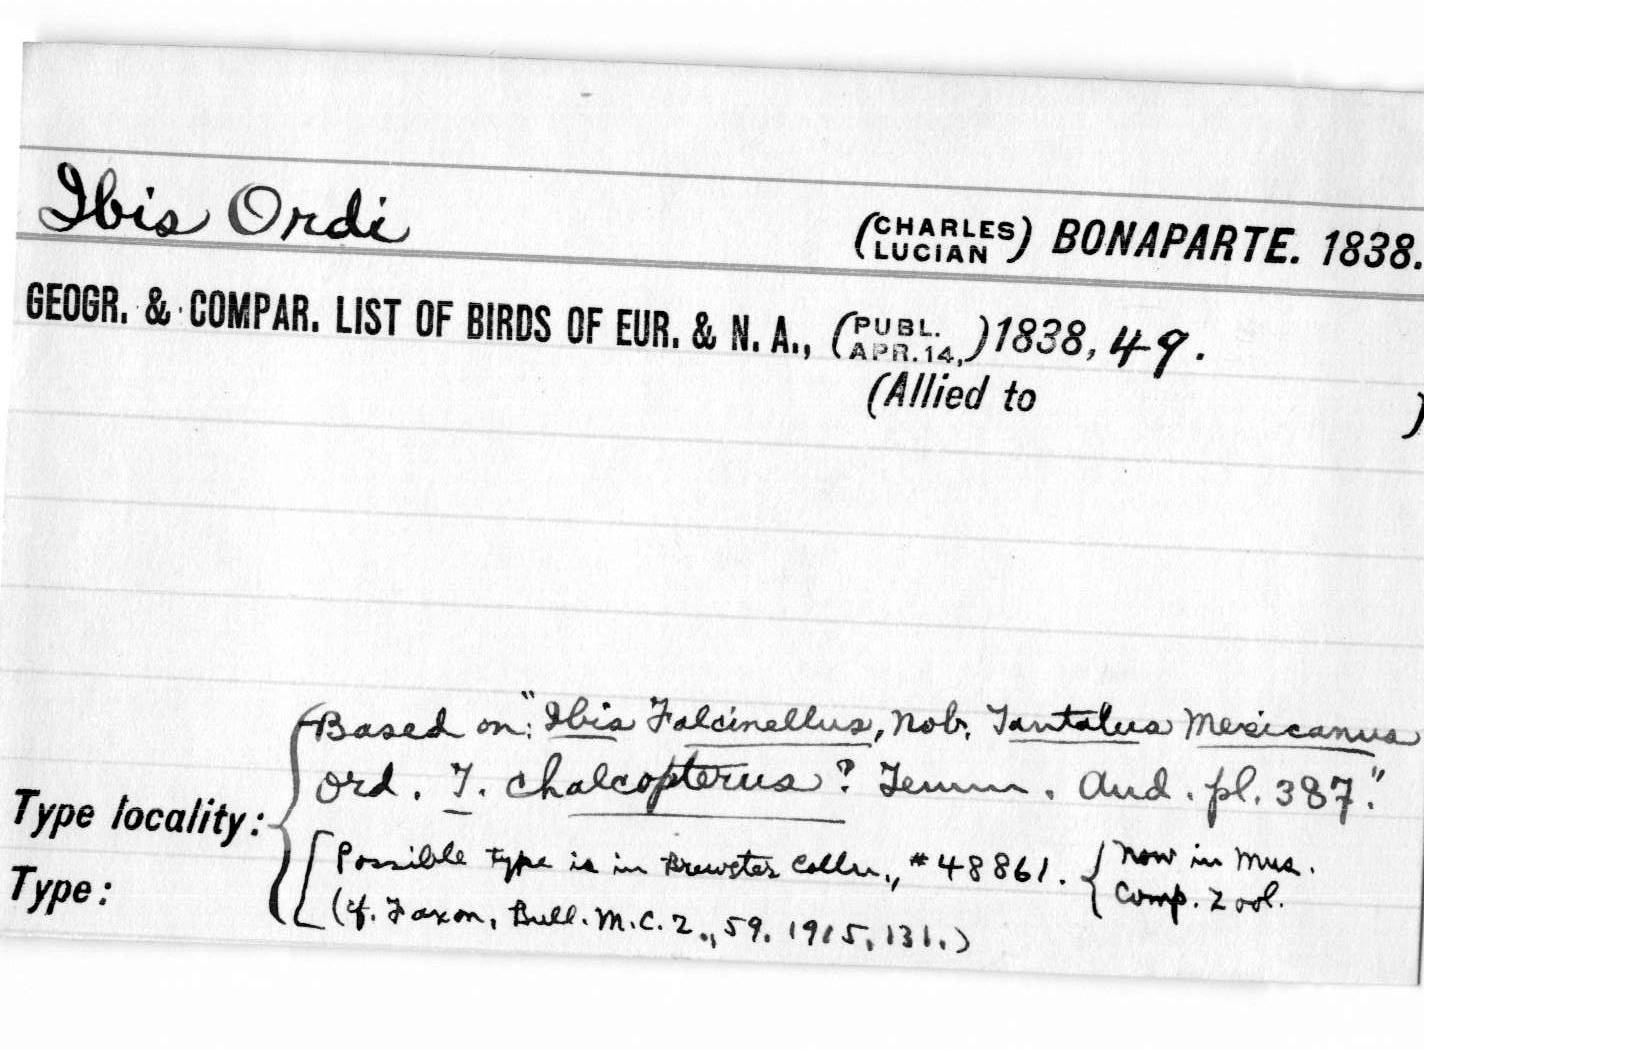 Ibis Ordi (CHARLES LUCIAN) BONAPARTE. 1838.
GEOGR. & COMPAR. LIST OF BIRDS OF EUR. & N. A., (PUBL. APR. 14,) 1838, 49.
(Allied to )
Based on: "Ibis Falcinellus, Nob. Tantalus Mexicanus
Ord. T. chalcopterus? Temm. Aud. pl. 387."
Type locality:
Possible type is in Brewster Colln., #48861. {Now in Mus.
Comp. Zool.
Type:
(cf. Faxon, Bull. M.C.Z., 59, 1915, 131.)